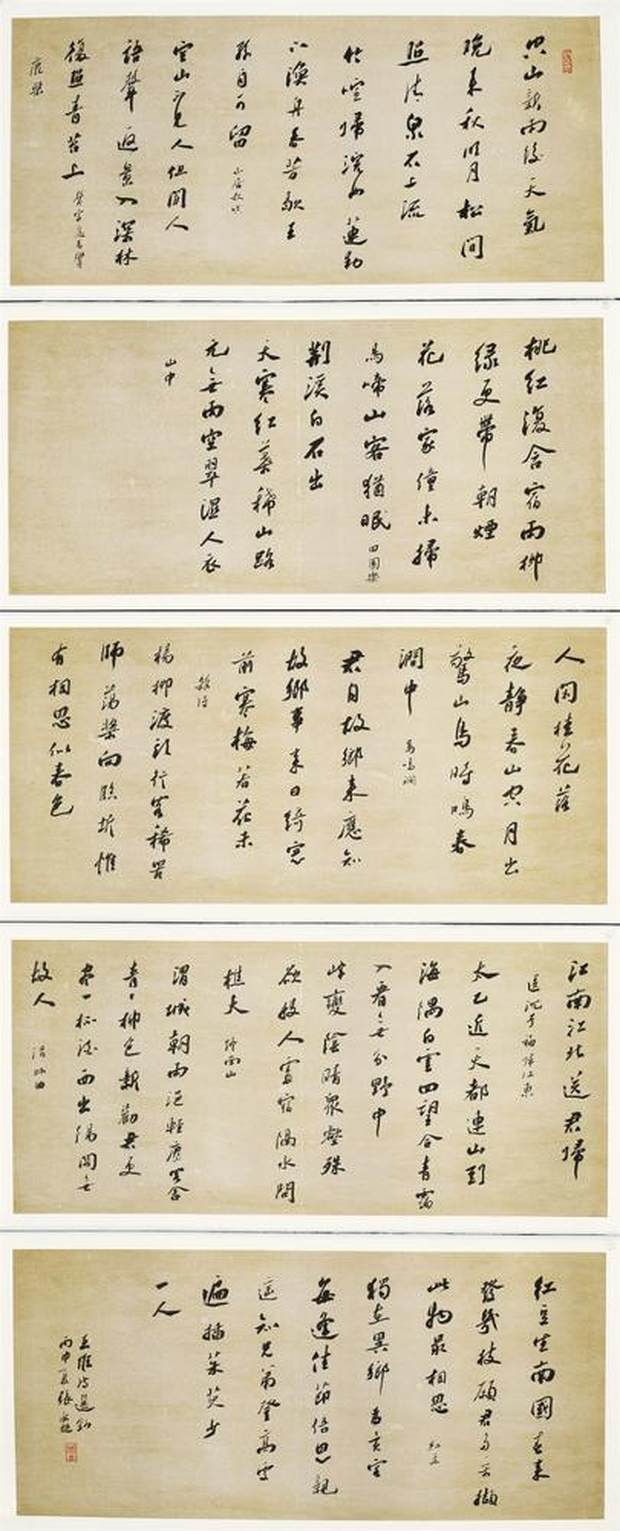 空山新雨後天氣
晚來秋明月松間
照清泉石上流
竹喧歸浣女蓮動
下漁舟春芳歇王
孫自可留 山居秋暝
空山不見人但聞人
語聲返景入深林
復照青苔上
鹿柴
桃紅復含宿雨柳
綠更帶朝煙
花落家僮未掃
鳥啼山客猶眠 田園樂
荆溪白石出
天寒紅葉稀山路
元無雨空翠濕人衣
山中
人閒桂花落
夜靜春山空月出
驚山鳥時鳴春
澗中 鳥鳴澗
君自故鄉來應知
故鄉事來日綺窗
前寒梅著花未
雜詩
楊柳渡頭行客稀罟
師蕩槳向臨圻惟
有相思似春色
江南江北送君歸
送沈子福歸江東
太乙近天都連山到
海隅白雲四望合青靄
入看無分野中
峰變陰晴衆壑殊
欲投人處宿隔水問
樵夫 終南山
渭城朝雨浥輕塵客舍
青〻柳色新勸君更
盡一杯酒西出陽關無
故人 渭城曲
紅豆生南國春來
發幾枝願君多采擷
此物最相思
獨在異鄉爲異客
每逢佳節倍思親
遙知兄弟登高處
遍插茱萸少
一人
王維詩選鈔
丙申夏張